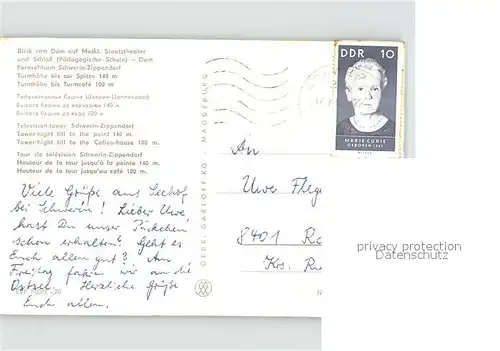 Blick vom Dom auf Meckl. Staatstheater
und Schloß (Pädagogische Schule) — Dom
Fernsehturm Schwerin-Zippendorf
Turmhöhe bis zur Spitze 140 m
Turmhöhe bis Turmcafé 100 m
Телевизионная башня Шверин-Циппендорф
Высота башни до верхушки 140 м
Высота башни до кафе 100 м
Television-tower Schwerin-Zippendorf
Tower-hight till to the point 140 m.
Tower-hight till to the Coffee-house 100 m.
Tour de télévision Schwerin-Zippendorf
Hauteur de la tour jusqu'à la pointe 140 m.
Hauteur de la tour jusqu'au café 100 m.
Viele Grüße aus Seehof
bei Schwerin! Lieber Uwe
hast Du unser Päckchen
schon erhalten? Geht es
Euch allen gut? Am
Freitag fahren wir an die
Ostsee. Herzliche Grüße
Euch allen.
GEBR. GARLOFF KG MAGDEBURG
DDR 10
MARIE CURIE
GEBOREN 1867
An
Uwe Fleg
8401 Ri
Krs. Rie
privacy protection
Datenschutz